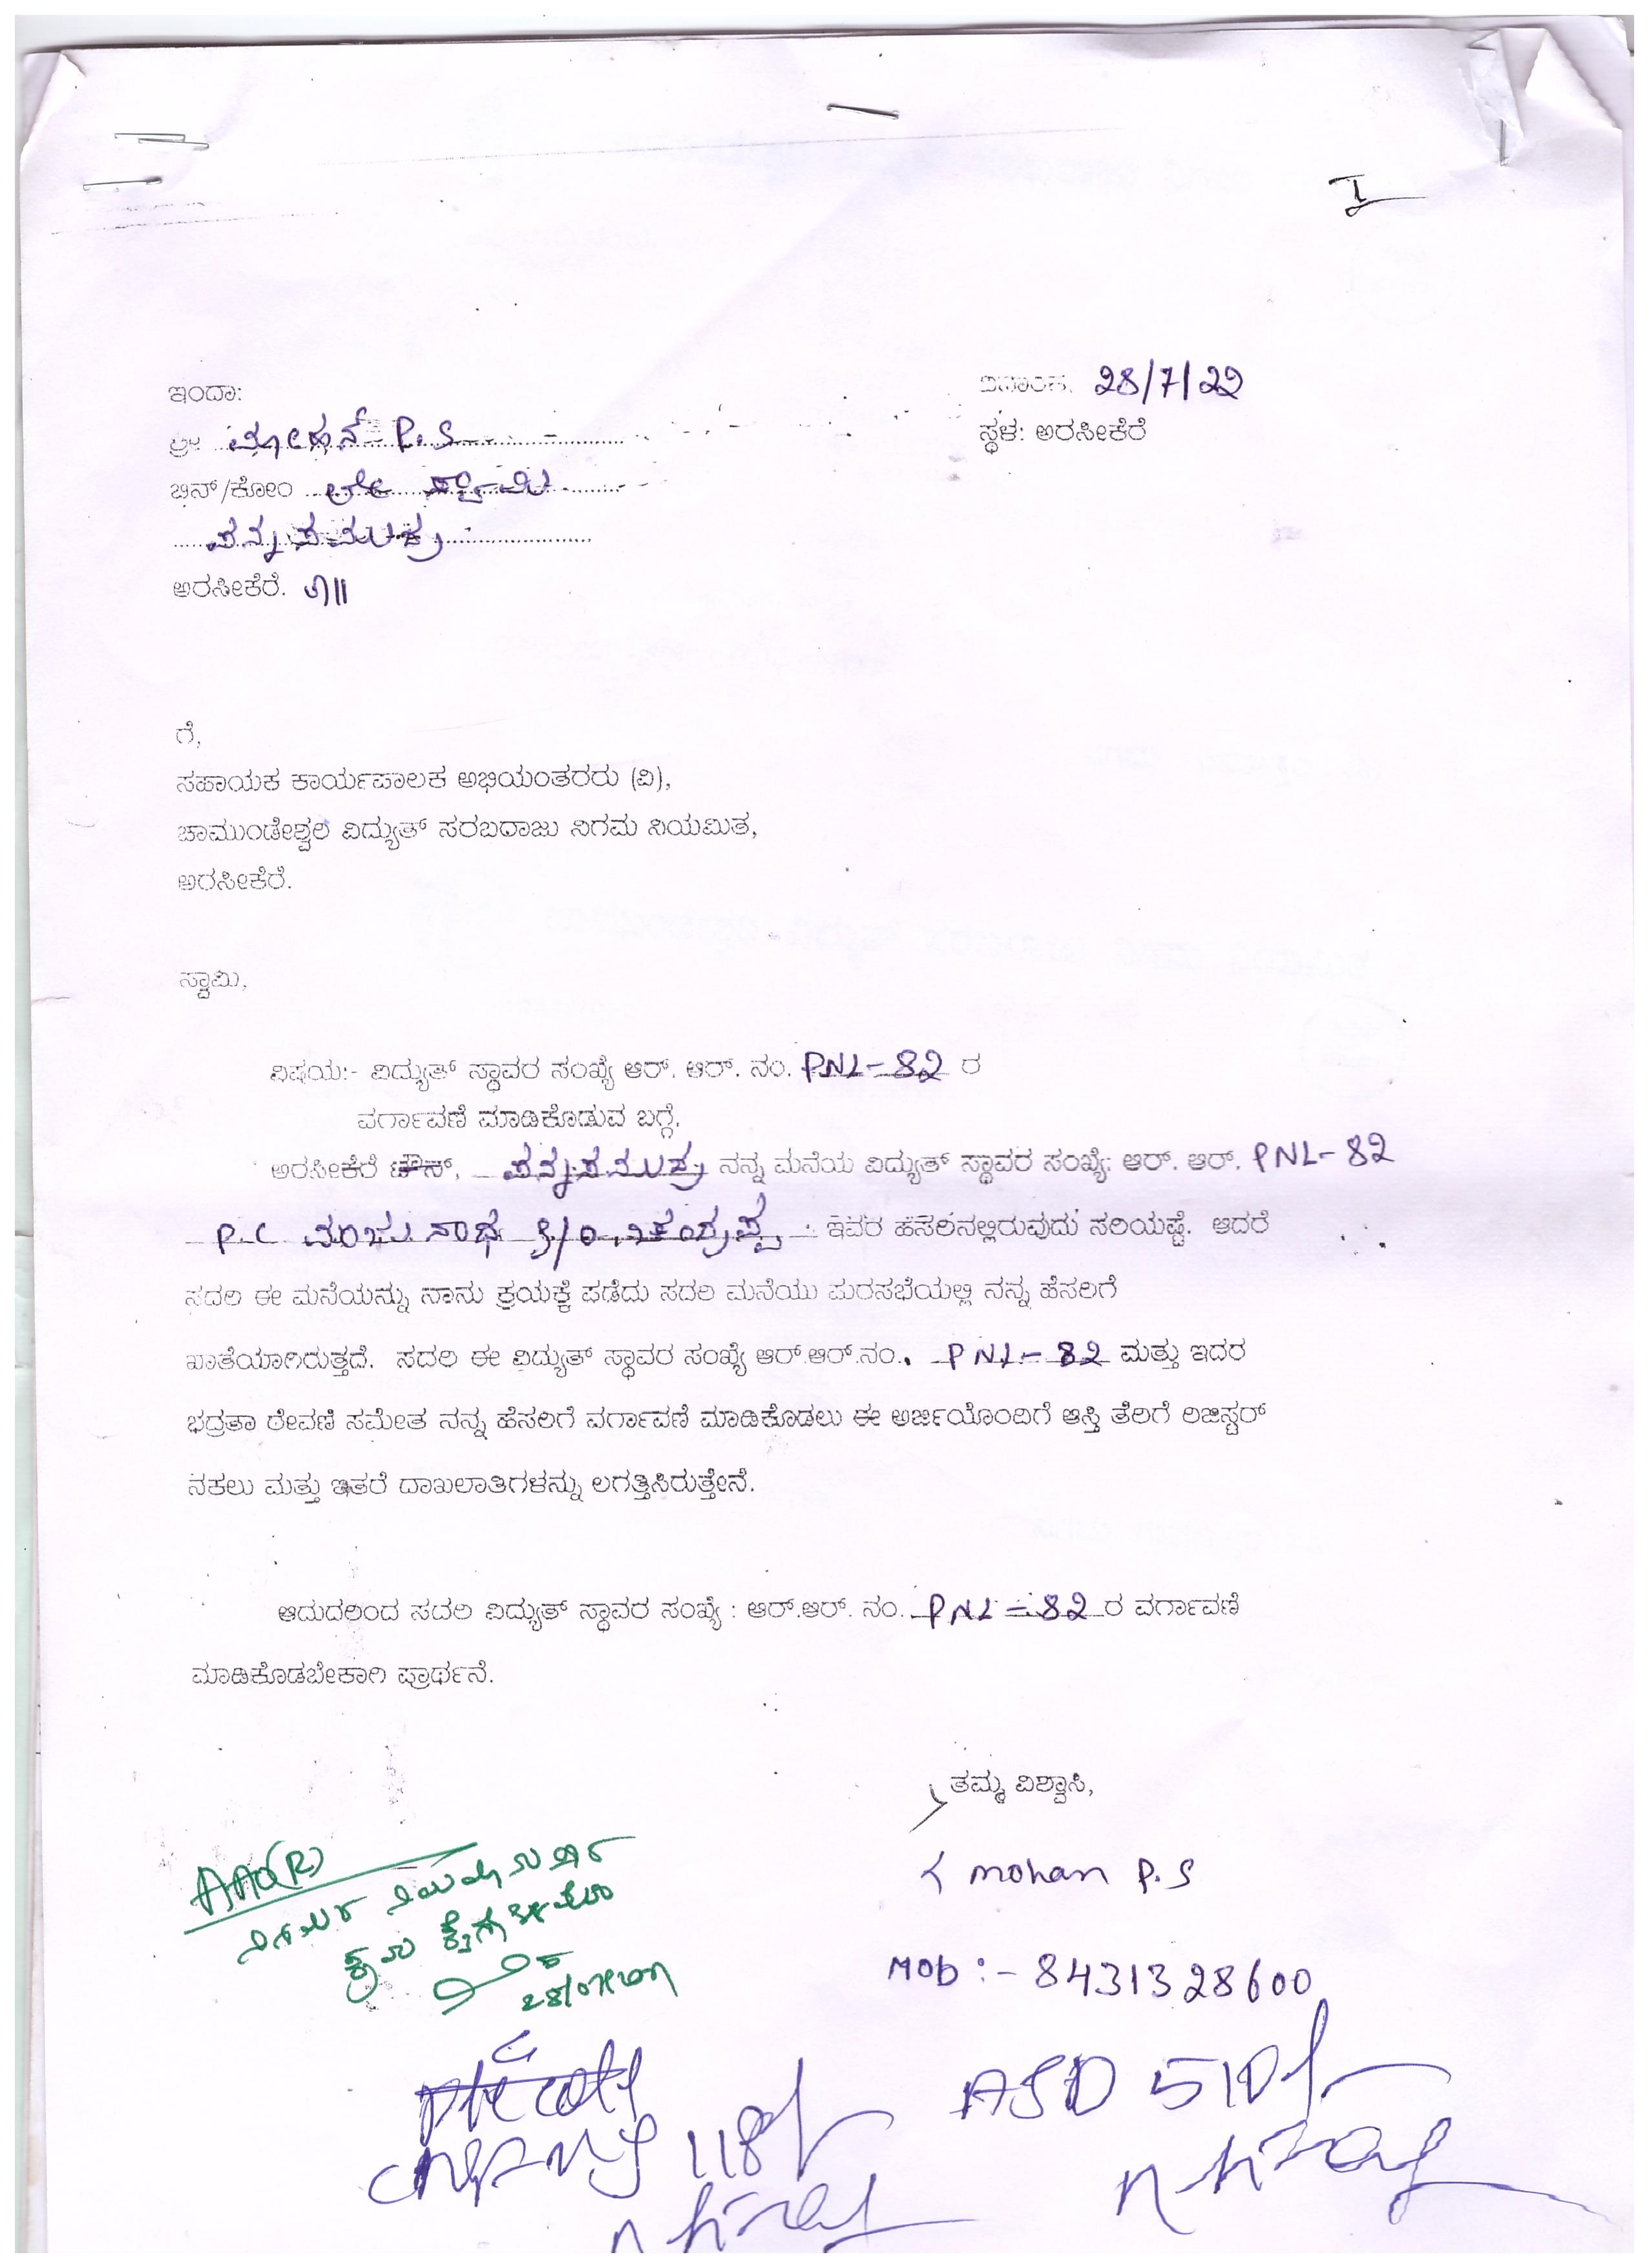 I
ಇಂದಾ:
ದಿನಾಂಕ. 28/7/22
ಶ್ರೀ ಮೋಹನ್ P.S
ಸ್ಥಳ: ಅರಸೀಕೆರೆ
ಬಿನ್/ಕೋಂ ಲೇ ಸ್ವಾಮಿ
ಪನ್ನಸಮುದ್ರ
ಅರಸೀಕೆರೆ. ತಾ||
ಗೆ,
ಸಹಾಯಕ ಕಾರ್ಯಪಾಲಕ ಅಭಿಯಂತರರು (ವಿ),
ಚಾಮುಂಡೇಶ್ವರಿ ವಿದ್ಯುತ್ ಸರಬರಾಜು ನಿಗಮ ನಿಯಮಿತ,
ಅರಸೀಕೆರೆ.
ಸ್ವಾಮಿ,
ವಿಷಯ:- ವಿದ್ಯುತ್ ಸ್ಥಾವರ ಸಂಖ್ಯೆ ಆರ್. ಆರ್. ನಂ. PNL-82 ರ
ವರ್ಗಾವಣೆ ಮಾಡಿಕೊಡುವ ಬಗ್ಗೆ.
ಅರಸೀಕೆರೆ ಟೌನ್, ಪನ್ನಸಮುದ್ರ ನನ್ನ ಮನೆಯ ವಿದ್ಯುತ್ ಸ್ಥಾವರ ಸಂಖ್ಯೆ: ಆರ್. ಆರ್. PNL-82
P.C ಮಂಜುನಾಥ S/O ಚಂದ್ರಪ್ಪ ಇವರ ಹೆಸರಿನಲ್ಲಿರುವುದು ಸರಿಯಷ್ಟೆ. ಆದರೆ
ಸದರಿ ಈ ಮನೆಯನ್ನು ನಾನು ಕ್ರಯಕ್ಕೆ ಪಡೆದು ಸದರಿ ಮನೆಯು ಪುರಸಭೆಯಲ್ಲಿ ನನ್ನ ಹೆಸರಿಗೆ
ಖಾತೆಯಾಗಿರುತ್ತದೆ. ಸದರಿ ಈ ವಿದ್ಯುತ್ ಸ್ಥಾವರ ಸಂಖ್ಯೆ ಆರ್.ಆರ್.ನಂ. PNL-82 ಮತ್ತು ಇದರ
ಭದ್ರತಾ ಠೇವಣಿ ಸಮೇತ ನನ್ನ ಹೆಸರಿಗೆ ವರ್ಗಾವಣೆ ಮಾಡಿಕೊಡಲು ಈ ಅರ್ಜಿಯೊಂದಿಗೆ ಆಸ್ತಿ ತೆರಿಗೆ ರಿಜಿಸ್ಟರ್
ನಕಲು ಮತ್ತು ಇತರೆ ದಾಖಲಾತಿಗಳನ್ನು ಲಗತ್ತಿಸಿರುತ್ತೇನೆ.
ಆದುದರಿಂದ ಸದರಿ ವಿದ್ಯುತ್ ಸ್ಥಾವರ ಸಂಖ್ಯೆ : ಆರ್.ಆರ್. ನಂ. PNL-82 ರ ವರ್ಗಾವಣೆ
ಮಾಡಿಕೊಡಬೇಕಾಗಿ ಪ್ರಾರ್ಥನೆ.
ತಮ್ಮ ವಿಶ್ವಾಸಿ,
AAO(R)
mohan P.S
ಕ್ರಮ ಕೈಗೊಳ್ಳಲು
MOb :- 8431328600
ASD 510/-
118/-